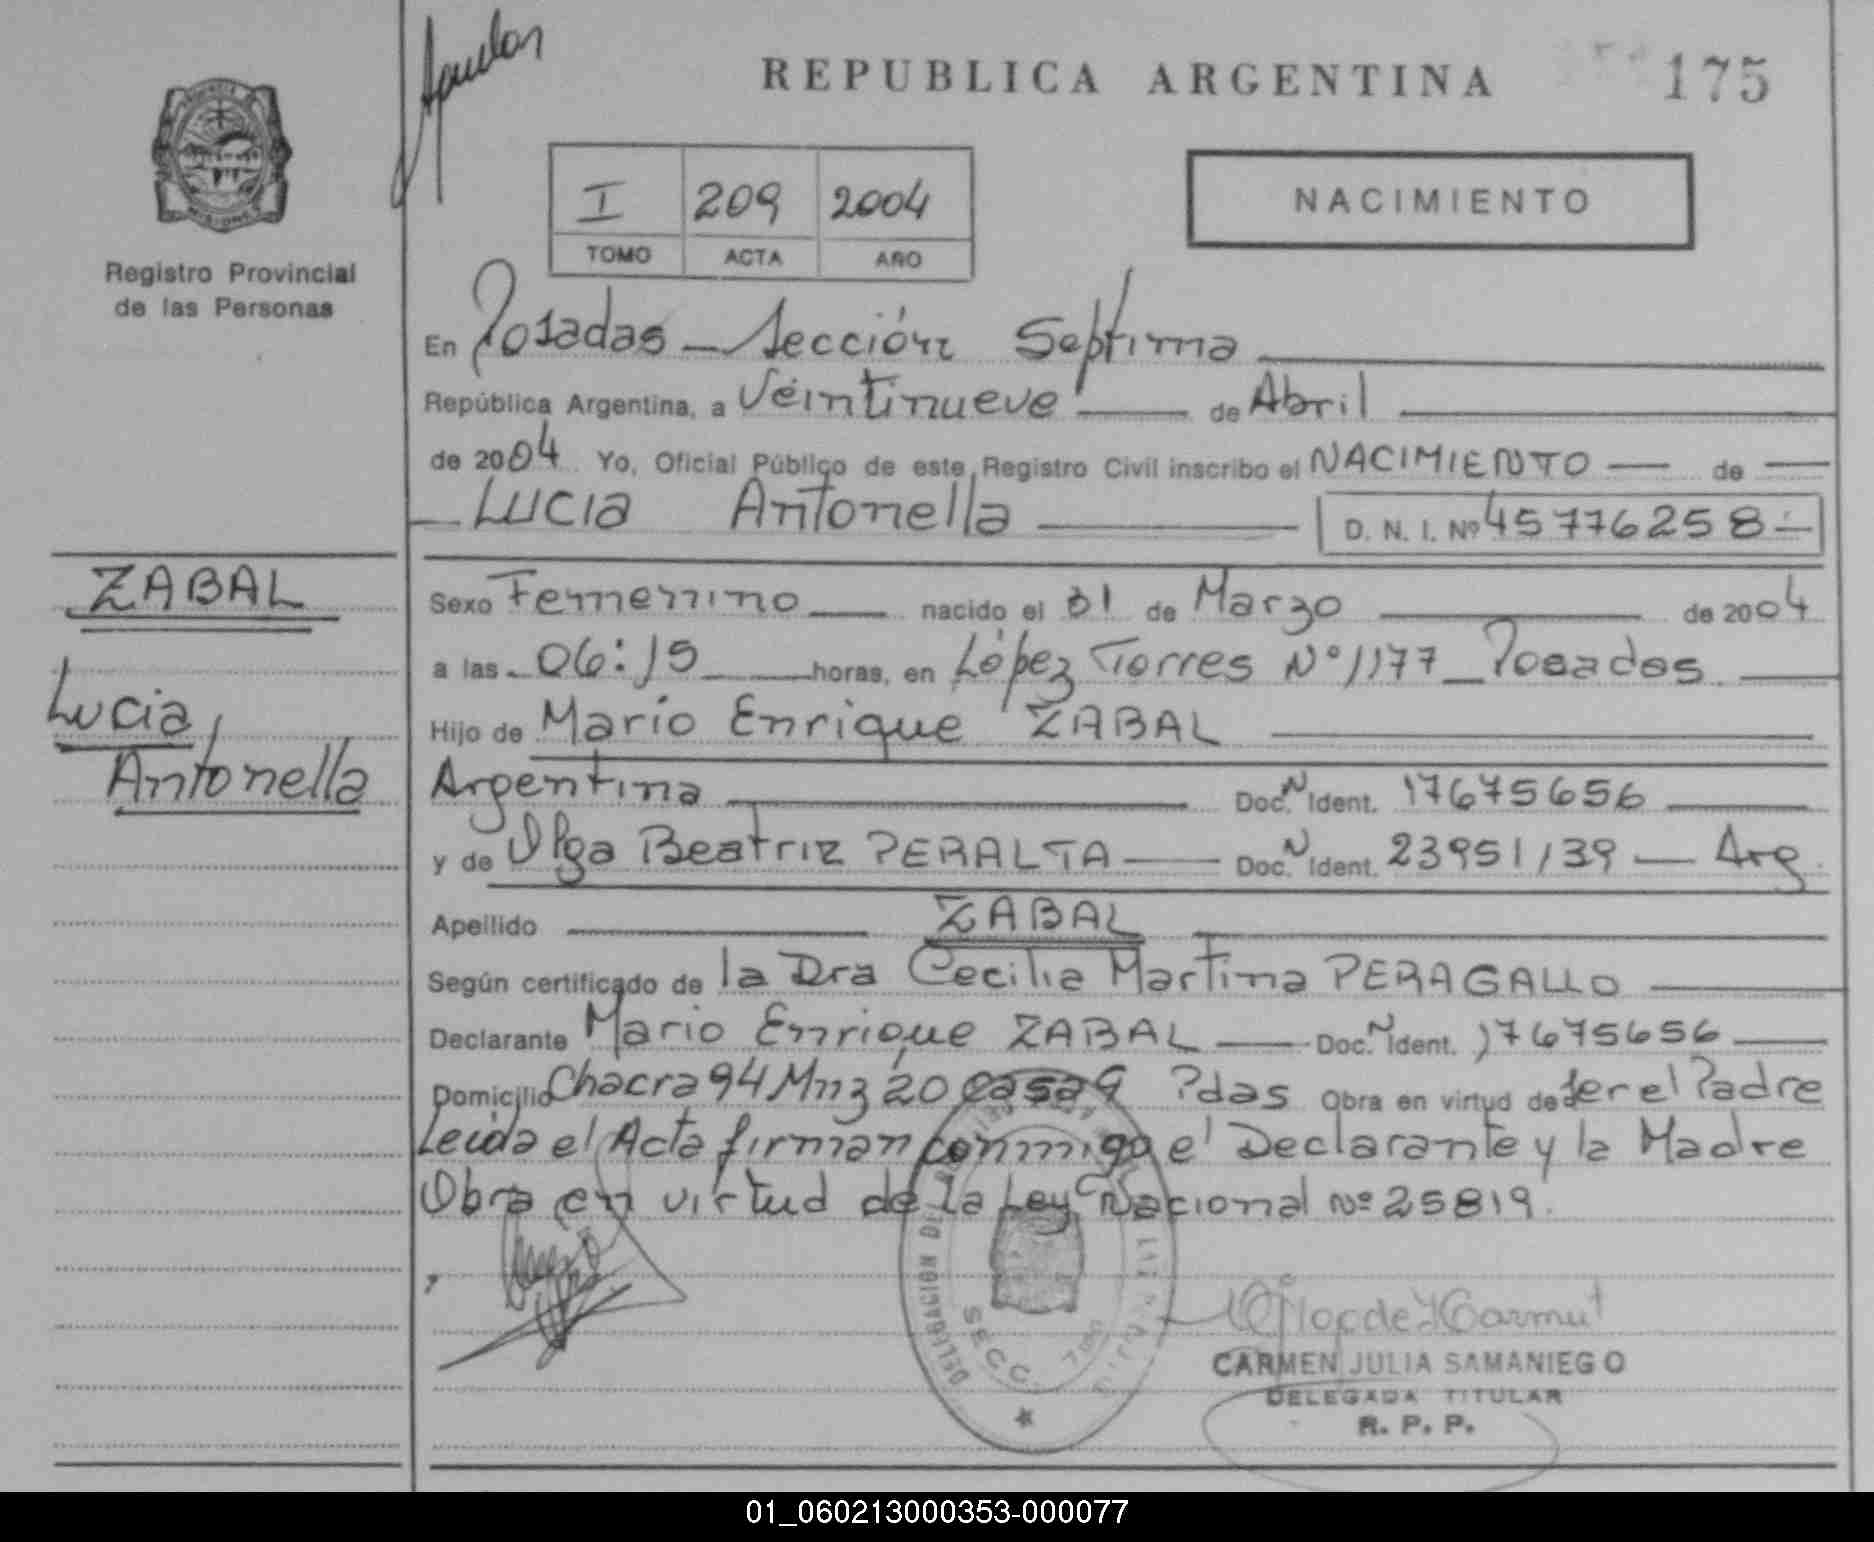 REPUBLICA ARGENTINA
175
Registro Provincial
de las Personas
I 209 2004
TOMO ACTA AÑO
NACIMIENTO
En Posadas - Sección Septima
República Argentina, a Veintinueve de Abril
de 2004 Yo, Oficial Público de este Registro Civil inscribo el NACIMIENTO de
Lucia Antonella D. N. I. Nº 45776258
ZABAL
Lucia
Antonella
Sexo Femenino nacido el 31 de Marzo de 2004
a las 06:15 horas, en López Torres Nº 1177 - Posadas
Hijo de Mario Enrique ZABAL
Argentina Doc. N Ident. 17675656
y de Olga Beatriz PERALTA Doc. N Ident. 23951139 - Arg.
Apellido ZABAL
Según certificado de la Dra Cecilia Martina PERAGALLO
Declarante Mario Enrique ZABAL Doc. N Ident. 17675656
Domicilio Chacra 94 Mnz 20 casa 9 Pdas Obra en virtud de Ser el Padre
Leida el Acta firman conmigo el Declarante y la Madre
Obra en virtud de la Ley Nacional Nº 25819.
DELEGACION DEL
SECC. 7
CARMEN JULIA SAMANIEGO
DELEGADA TITULAR
R. P. P.
01_060213000353-000077